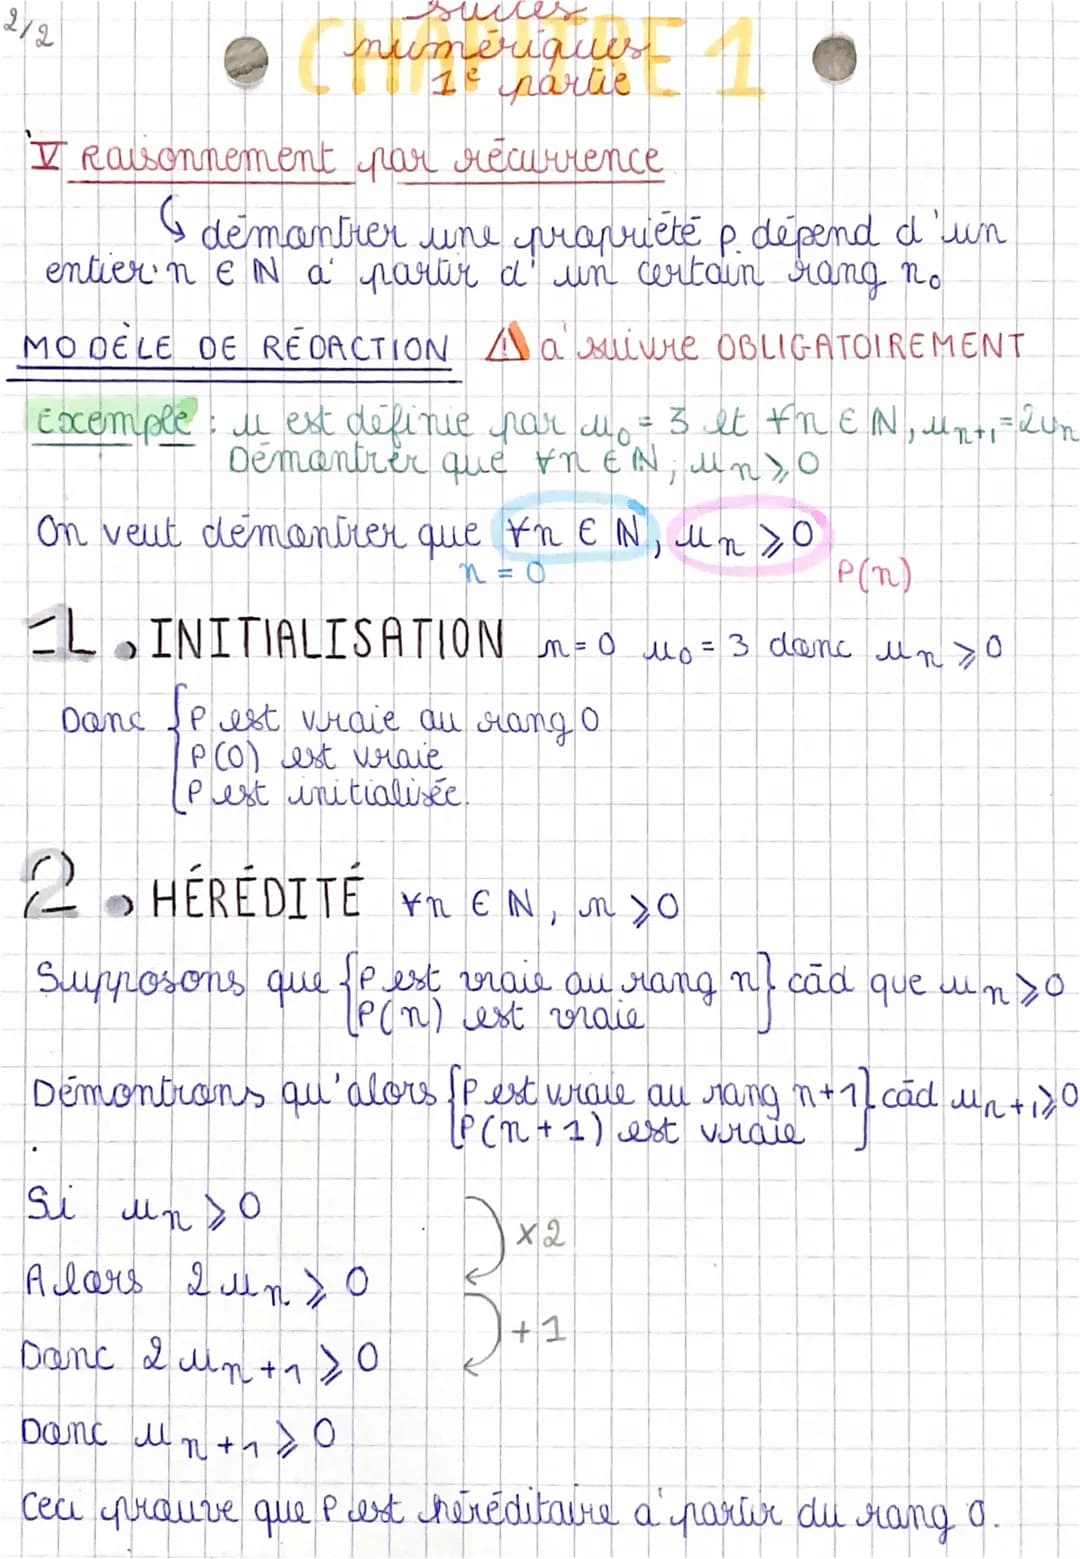 2/2
CHAPITRE 1
suites
numériques
1e partie
V Raisonnement par récurrence
↳ démontrer une propriété p dépend d'un
entier n ∈ ℕ à partir d'un certain rang n₀
MODÈLE DE RÉDACTION ⚠ à suivre OBLIGATOIREMENT
Exemple : u est définie par u₀ = 3 et ∀n ∈ ℕ, uₙ₊₁ = 2uₙ
Démontrer que ∀n ∈ ℕ, uₙ ⩾ 0
On veut démontrer que ∀n ∈ ℕ, uₙ ⩾ 0
n = 0 P(n)
1. INITIALISATION n = 0 u₀ = 3 donc uₙ ⩾ 0
Donc { P est vraie au rang 0
P(0) est vraie
P est initialisée.
2. HÉRÉDITÉ ∀n ∈ ℕ, n ⩾ 0
Supposons que { P est vraie au rang n } càd que uₙ ⩾ 0
P(n) est vraie
Démontrons qu'alors { P est vraie au rang n+1 } càd uₙ₊₁ ⩾ 0
P(n+1) est vraie
Si uₙ ⩾ 0
×2
Alors 2uₙ ⩾ 0
+1
Donc 2uₙ+1 ⩾ 0
Donc uₙ₊₁ ⩾ 0
Ceci prouve que P est héréditaire à partir du rang 0.